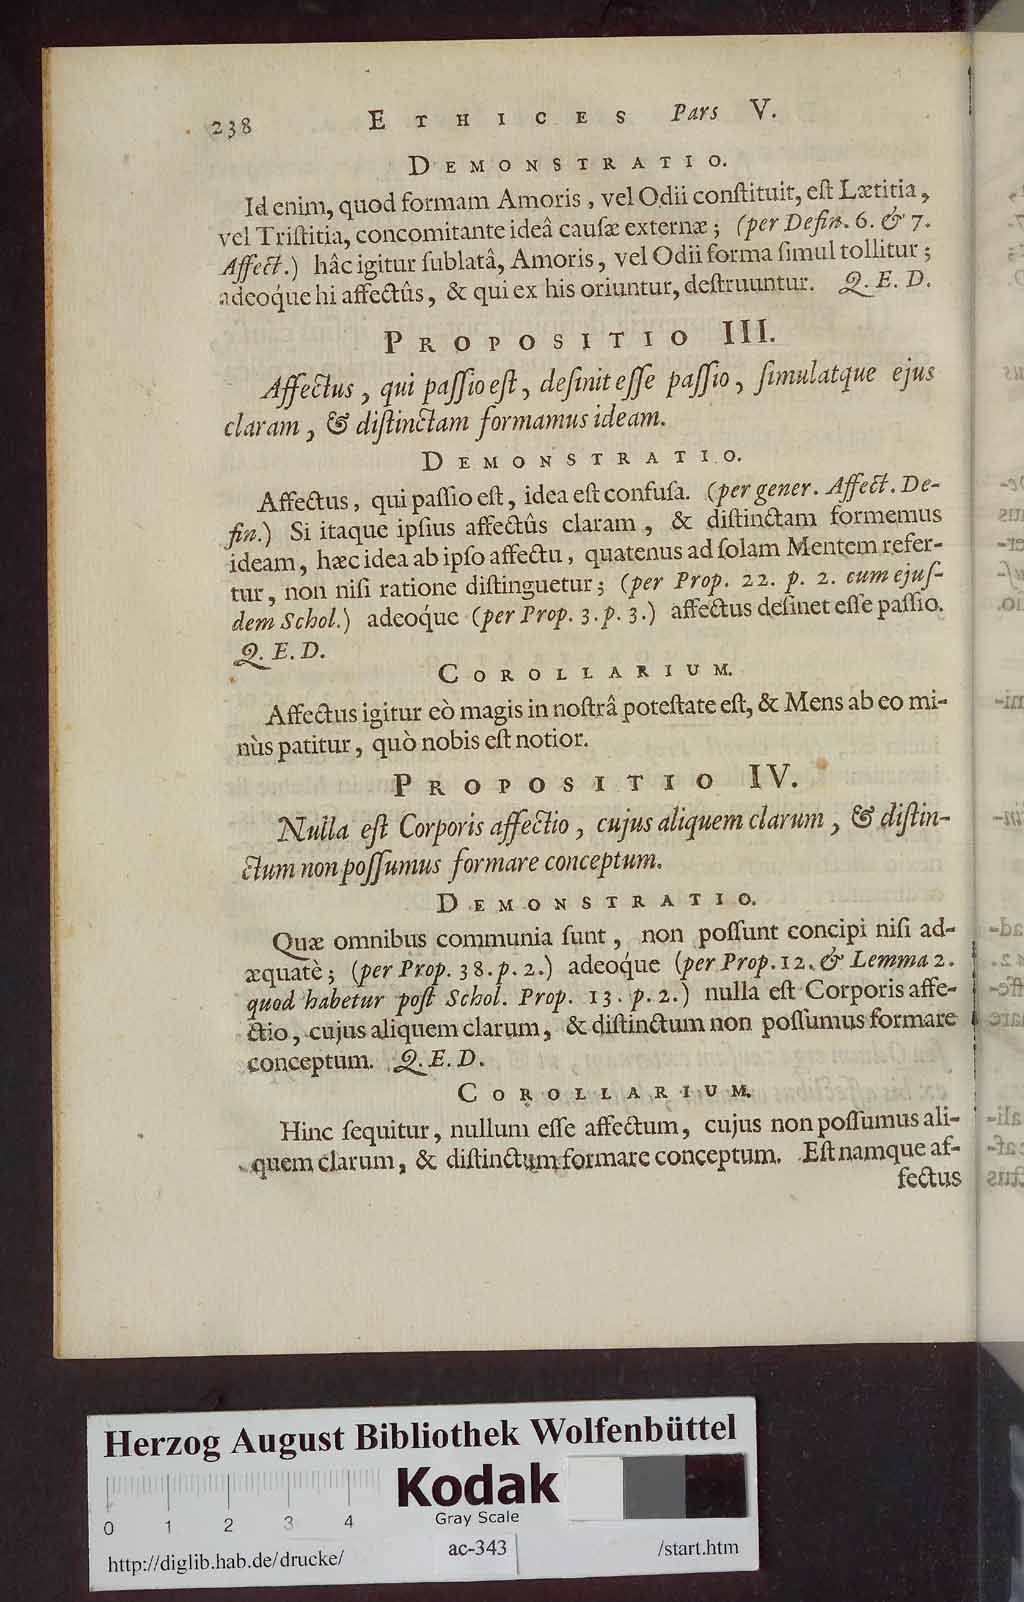 238 ETHICES Pars V.
DEMONSTRATIO.
Id enim, quod formam Amoris, vel Odii conſtituit, eſt Lætitia,
vel Triſtitia, concomitante ideâ cauſæ externæ; (per Defin. 6. & 7.
Affect.) hâc igitur ſublatâ, Amoris, vel Odii forma ſimul tollitur;
adeoq́ue hi affectûs, & qui ex his oriuntur, deſtruuntur. Q. E. D.
PROPOSITIO III.
Affectus, qui paſſio eſt, deſinit eſſe paſſio, ſimulatque ejus
claram, & diſtinctam formamus ideam.
DEMONSTRATIO.
Affectus, qui paſſio eſt, idea eſt confuſa. (per gener. Affect. De-
fin.) Si itaque ipſius affectûs claram, & diſtinctam formemus
ideam, hæc idea ab ipſo affectu, quatenus ad ſolam Mentem refer-
tur, non niſi ratione diſtinguetur; (per Prop. 22. p. 2. cum ejuſ-
dem Schol.) adeoq́ue (per Prop. 3. p. 3.) affectus deſinet eſſe paſſio.
Q. E. D.
COROLLARIUM.
Affectus igitur eò magis in noſtrâ poteſtate eſt, & Mens ab eo mi-
nùs patitur, quò nobis eſt notior.
PROPOSITIO IV.
Nulla eſt Corporis affectio, cujus aliquem clarum, & diſtin-
ctum non poſſumus formare conceptum.
DEMONSTRATIO.
Quæ omnibus communia ſunt, non poſſunt concipi niſi ad-
æquatè; (per Prop. 38. p. 2.) adeoq́ue (per Prop. 12. & Lemma 2.
quod habetur poſt Schol. Prop. 13. p. 2.) nulla eſt Corporis affe-
ctio, cujus aliquem clarum, & diſtinctum non poſſumus formare
conceptum. Q. E. D.
COROLLARIUM.
Hinc ſequitur, nullum eſſe affectum, cujus non poſſumus ali-
quem clarum, & diſtinctum formare conceptum. Eſt namque af-
fectus
Herzog August Bibliothek Wolfenbüttel
Kodak
Gray Scale
0 1 2 3 4
http://diglib.hab.de/drucke/ ac-343 /start.htm